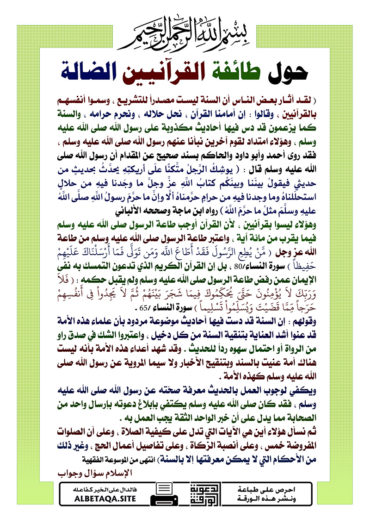 بسم الله الرحمن الرحيم
حول طائفة القرآنيين الضالة
( لقد أثار بعض الناس أن السنة ليست مصدراً للتشريع ، وسموا أنفسهم
بالقرآنيين ، وقالوا : إن أمامنا القرآن ، نحل حلاله ، ونحرم حرامه ، والسنة
كما يزعمون قد دس فيها أحاديث مكذوبة على رسول الله صلى الله عليه
وسلم ، وهؤلاء امتداد لقوم آخرين نبأنا عنهم رسول الله صلى الله عليه وسلم ،
فقد روى أحمد وأبو داود والحاكم بسند صحيح عن المقدام أن رسول الله صلى
الله عليه وسلم قال : ( يوشِكُ الرَّجلُ متَّكئًا على أريكتِهِ يحدَّثُ بحديثٍ من
حديثي فيقولُ بينَنا وبينَكُم كتابُ اللَّهِ عزَّ وجلَّ ما وجدنا فيهِ من حلالٍ
استحللناهُ وما وجدنا فيهِ من حرامٍ حرَّمناهُ ألَّا وإنَّ ما حرَّمَ رسولُ اللَّهِ صلَّى اللَّهُ
عليهِ وسلَّمَ مثلُ ما حرَّمَ اللَّهُ ) رواه ابن ماجة وصححه الألباني
وهؤلاء ليسوا بقرآنيين ، لأن القرآن أوجب طاعة الرسول صلى الله عليه وسلم
فيما يقرب من مائة آية ، واعتبر طاعة الرسول صلى الله عليه وسلم من طاعة
الله عز وجل ( مَّنْ يُطِعِ الرَّسُولَ فَقَدْ أَطَاعَ اللَّهَ وَمَن تَوَلَّى فَمَا أَرْسَلْنَاكَ عَلَيْهِمْ
حَفِيظاً ) سورة النساء/80 ، بل إن القرآن الكريم الذي تدعون التمسك به نفى
الإيمان عمن رفض طاعة الرسول صلى الله عليه وسلم ولم يقبل حكمه : ( فَلَا
وَرَبِّكَ لَا يُؤْمِنُونَ حَتَّىَ يُحَكِّمُوكَ فِيمَا شَجَرَ بَيْنَهُمْ ثُمَّ لَا يَجِدُواْ فِي أَنْفُسِهِمْ
حَرَجاً مِّمَّا قَضَيْتَ وَيُسَلِّمُواْ تَسْلِيماً ) سورة النساء /65 .
وقولهم : إن السنة قد دست فيها أحاديث موضوعة مردود بأن علماء هذه الأمة
قد عنوا أشد العناية بتنقية السنة من كل دخيل ، واعتبروا الشك في صدق راو
من الرواة أو احتمال سهوه رداً للحديث . وقد شهد أعداء هذه الأمة بأنه ليست
هناك أمة عنيت بالسند وبتنقيح الأخبار ولا سيما المروية عن رسول الله صلى
الله عليه وسلم كهذه الأمة .
ويكفي لوجوب العمل بالحديث معرفة صحته عن رسول الله صلى الله عليه
وسلم ، فقد كان صلى الله عليه وسلم يكتفي بإبلاغ دعوته بإرسال واحد من
الصحابة مما يدل على أن خبر الواحد الثقة يجب العمل به .
ثم نسأل هؤلاء أين هي الآيات التي تدل على كيفية الصلاة ، وعلى أن الصلوات
المفروضة خمس ، وعلى أنصبة الزكاة ، وعلى تفاصيل أعمال الحج ، وغير ذلك
من الأحكام التي لا يمكن معرفتها إلا بالسنة) انتهى من الموسوعة الفقهية
الإسلام سؤال وجواب
احرص على طباعة
ونشر هذه الورقة
فالدال على الخير كفاعله
ALBETAQA.SITE